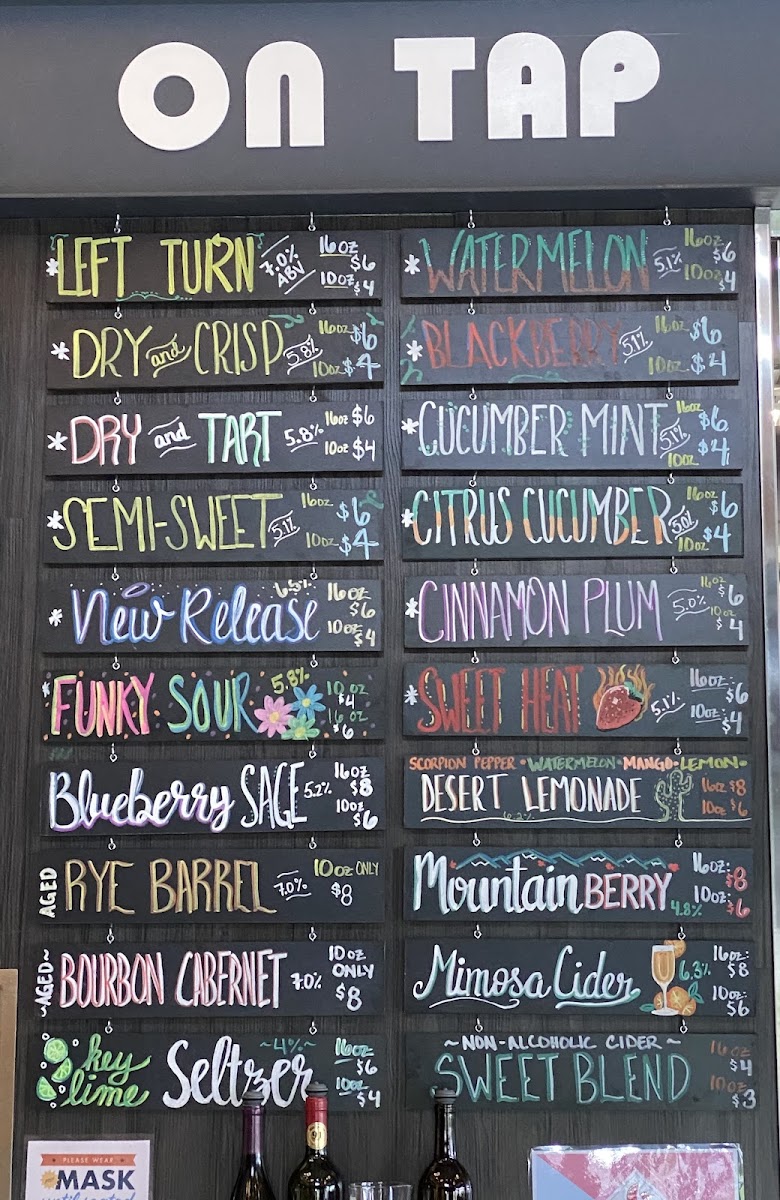 ON TAP
* LEFT TURN 7.0% ABV 16oz $6 10oz $4
* DRY and CRISP 5.8% 16oz $6 10oz $4
* DRY and TART 5.8% 16oz $6 10oz $4
* SEMI-SWEET 5.1% 16oz $6 10oz $4
* New Release 6.5% 16oz $6 10oz $4
* FUNKY SOUR 5.8% 10oz $4 16oz $6
Blueberry SAGE 5.2% 16oz $8 10oz $6
AGED RYE BARREL 7.0% 10oz ONLY $8
~AGED~ BOURBON CABERNET 7.0% 10oz ONLY $8
key lime Seltzer ~4%~ 16oz $6 10oz $4
* WATERMELON 5.1% 16oz $6 10oz $4
* BLACKBERRY 5.1% 16oz $6 10oz $4
* CUCUMBER MINT 5.1% 16oz $6 10oz $4
* CITRUS CUCUMBER 5.0% 16oz $6 10oz $4
* CINNAMON PLUM 5.0% 16oz $6 10oz $4
* SWEET HEAT 5.1% 16oz: $6 10oz: $4
SCORPION PEPPER • WATERMELON • MANGO • LEMON •
DESERT LEMONADE 6.2% 16oz $8 10oz $6
Mountain BERRY 4.8% 16oz: $8 10oz: $6
Mimosa Cider 6.3% 16oz: $8 10oz: $6
~NON-ALCOHOLIC CIDER~
SWEET BLEND 16oz $4 10oz $3
PLEASE WEAR
MASK
until seated